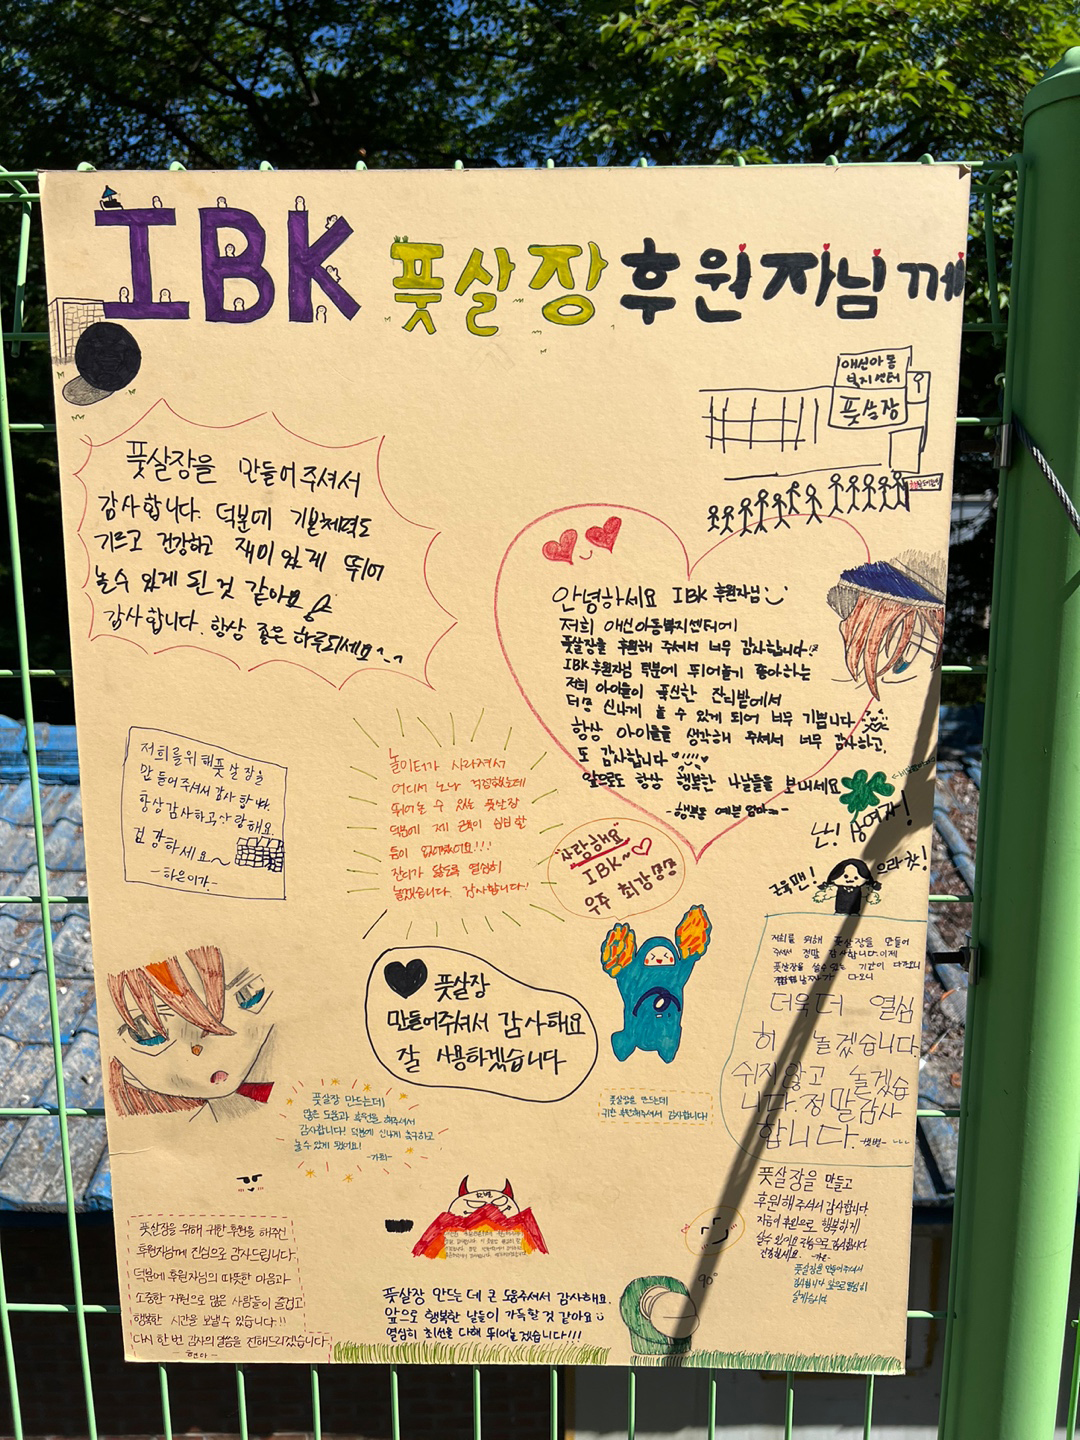 IBK 풋살장 후원자님께
애신아동
복지센터
풋살장
풋살장을 만들어주셔서
감사합니다. 덕분에 기본체력도
기르고 건강하고 재미있게 뛰어
놀수 있게 된 것 같아요
감사합니다. 항상 좋은 하루되세요^_^
안녕하세요 IBK 후원자님
저희 애신아동복지센터에
풋살장을 후원해 주셔서 너무 감사합니다!
IBK후원자님 덕분에 뛰어놀기 좋아하는
저희 아이들이 푹신한 잔디밭에서
더욱 신나게 놀 수 있게 되어 너무 기쁩니다
항상 아이들을 생각해 주셔서 너무 감사하고,
또 감사합니다
앞으로도 항상 행복한 나날들을 보내세요
-행복동 예쁜 엄마-
저희를위해풋살장을
만들어주셔서감사합니다.
항상감사하고사랑해요.
건강하세요~
-하은이가-
놀이터가 사라져서
어디서 노나 걱정했는데
뛰어놀 수 있는 풋살장
덕분에 제 근육이 쉼쉴
틈이 없어졌어요!!!
잔디가 닳도록 열심히
놀겠습니다. 감사합니다!
"사랑해요"
IBK~♡
우주 최강
난! 상여자!
근육맨!
으라챠!
저희를 위해 풋살장을 만들어
주셔서 정말 감사합니다.이제
풋살장을 쓸수있는 기간이 다가오니
다오니
더욱더 열심
히 놀겠습니다.
쉬지않고 놀겠습
니다.정말감사
합니다.
♥ 풋살장
만들어주셔서 감사해요
잘 사용하겠습니다
풋살장 만드는데
많은 도움과 후원을 해주셔서
감사합니다! 덕분에 신나게 축구하고
놀수있게 됐어요!
-가희-
풋살장을 만드는데
귀한 후원해주셔서 감사합니다!
풋살장을 위해 귀한 후원을 해주신
후원자님께 진심으로 감사드립니다.
덕분에 후원자님의 따뜻한 마음과
소중한 지원으로 많은 사람들이 즐겁고
행복한 시간을 보낼수 있습니다!!
다시 한 번 감사의 말씀을 전해드리겠습니다
-현아-
풋살장 만드는 데 큰 도움주셔서 감사해요.
앞으로 행복한 날들이 가득할 것 같아요
열심히 최선을 다해 뛰어놀겠습니다!!!
90°
풋살장을 만들고
후원해주셔서 감사합니다.
행복하게
풋살장을 만들어주셔서
감사합니다 앞으로열심히